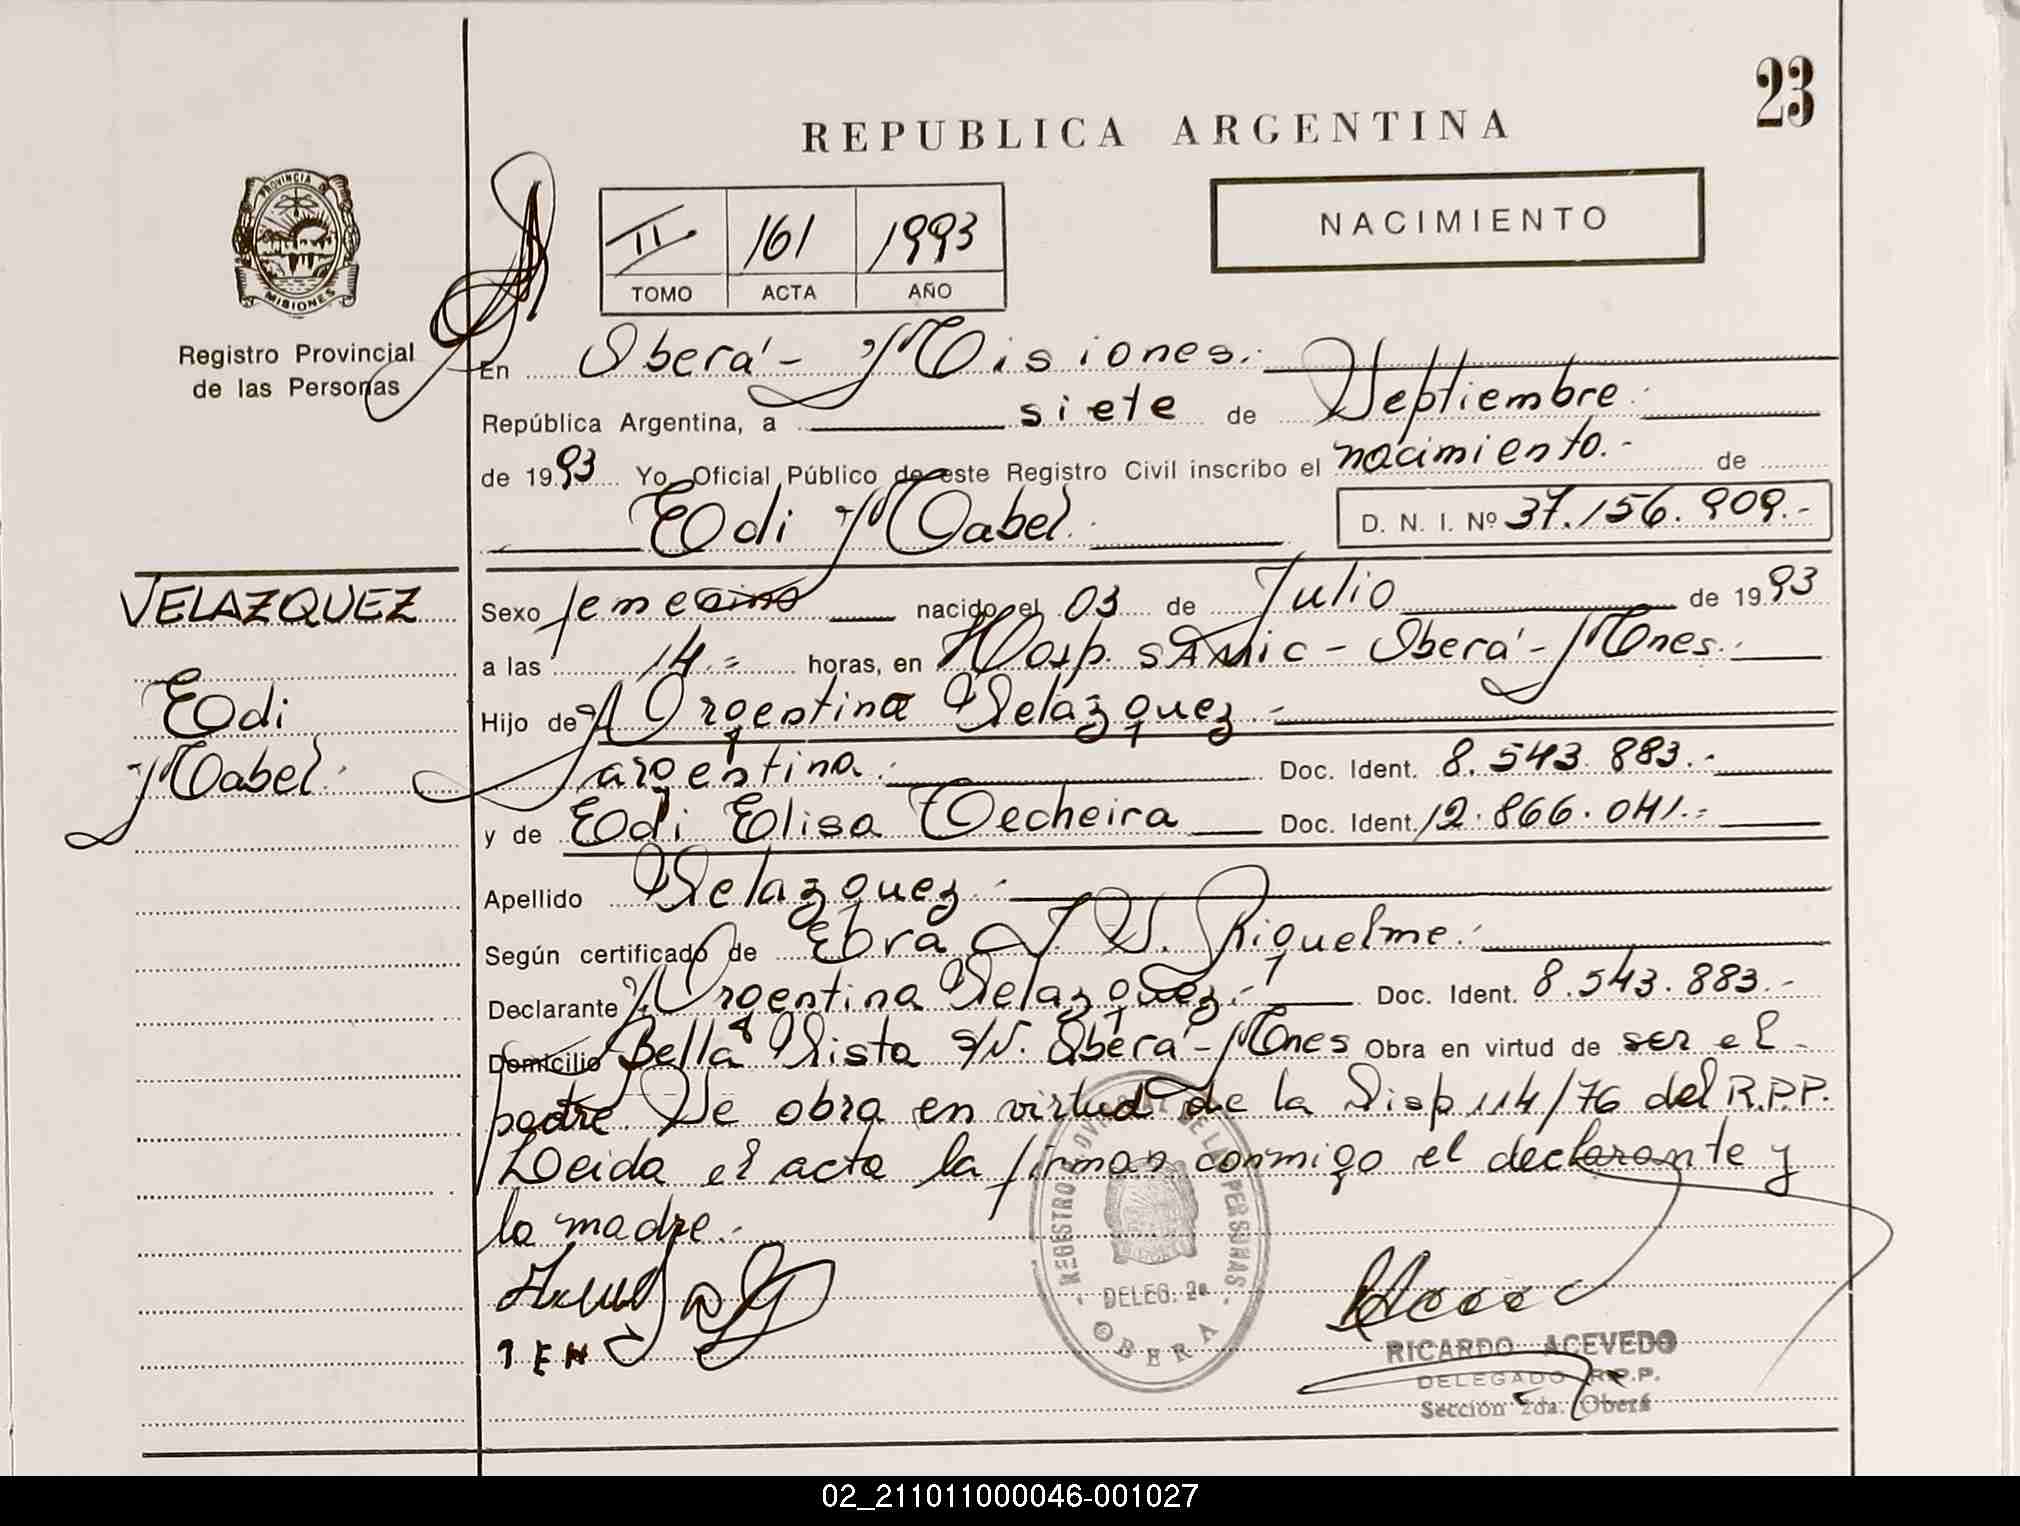 23
REPUBLICA ARGENTINA
NACIMIENTO
PROVINCIA DE
MISIONES
Registro Provincial
de las Personas
II 161 1993
TOMO ACTA AÑO
En Oberá - Misiones.-
República Argentina, a siete de Septiembre
de 1993 Yo Oficial Público de este Registro Civil inscribo el nacimiento.- de
Edi Mabel. D. N. I. Nº 37.156.909.-
VELAZQUEZ
Edi
Mabel.
Sexo femenino nacido el 03 de Julio de 1993
a las 14.= horas, en Hosp. SAMIC - Oberá - Mnes.-
Hijo de Argentina Velazquez.-
argentina.- Doc. Ident. 8.543.883.-
y de Edi Elisa Techeira Doc. Ident. 12.866.041.=
Apellido Velazquez.-
Según certificado de J. V. Riquelme.-
Declarante Argentina Velazquez.- Doc. Ident. 8.543.883.-
Domicilio Bella Vista S/N. Oberá - Mnes Obra en virtud de ser el
padre. Se obra en virtud de la Disp 114/76 del R.P.P.
Leida el acta la firman conmigo el declarante y
la madre.-
REGISTRO PROVINCIAL DE LAS PERSONAS
DELEG. 2a
OBERA
RICARDO ACEVEDO
DELEGADO R.P.P.
Sección 2da. Oberá
02_211011000046-001027